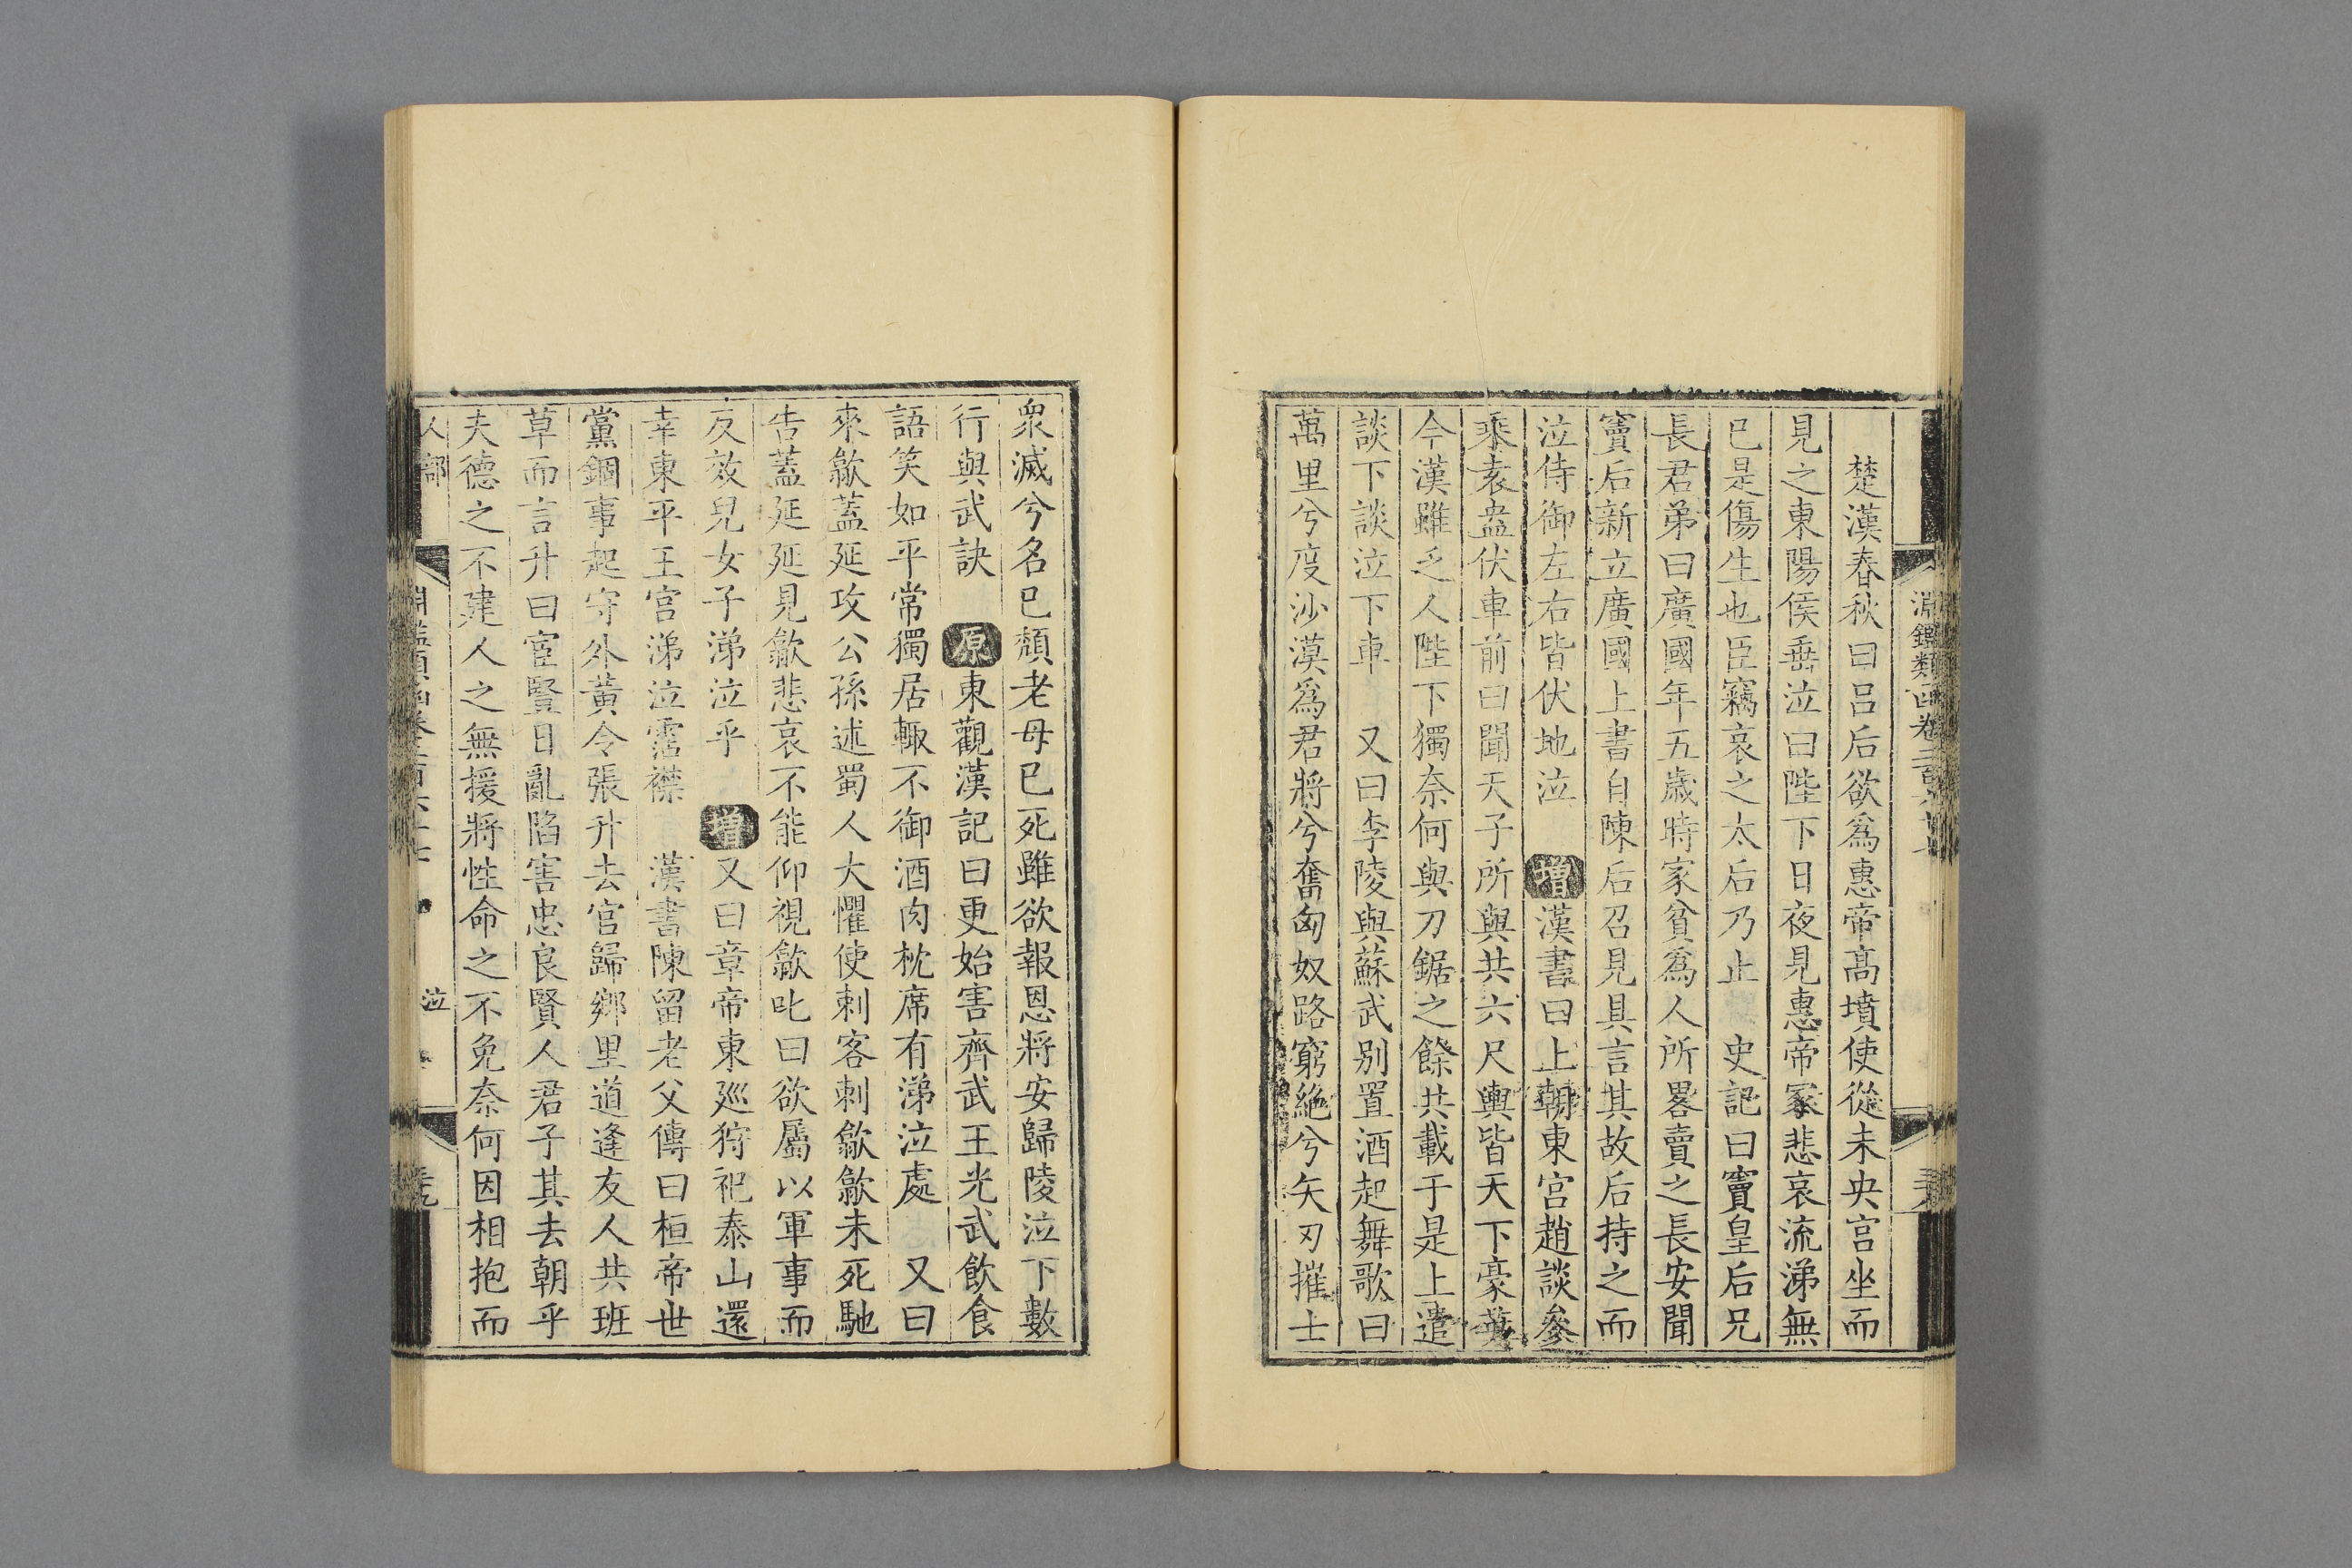 淵鑑類函卷二百六十七
楚漢春秋曰呂后欲爲惠帝高墳使從未央宮坐而
見之東陽侯垂泣曰陛下日夜見惠帝冢悲哀流涕無
已是傷生也臣竊哀之太后乃止 史記曰竇皇后兄
長君弟曰廣國年五歲時家貧爲人所畧賣之長安聞
竇后新立廣國上書自陳后召見具言其故后持之而
泣侍御左右皆伏地泣 增漢書曰上朝東宮趙談參
乘袁盎伏車前曰聞天子所與共六尺輿皆天下豪英
今漢雖乏人陛下獨奈何與刀鋸之餘共載于是上遣
談下談泣下車 又曰李陵與蘇武别置酒起舞歌曰
萬里兮度沙漠爲君將兮奮匈奴路窮絶兮矢刃摧士
衆滅兮名已頽老母已死雖欲報恩將安歸陵泣下數
行與武訣 原東觀漢記曰更始害齊武王光武飲食
語笑如平常獨居輒不御酒肉枕席有涕泣處 又曰
來歙蓋延攻公孫述蜀人大懼使刺客刺歙歙未死馳
告蓋延延見歙悲哀不能仰視歙叱曰欲屬以軍事而
反效兒女子涕泣乎 增又曰章帝東廵狩祀泰山還
幸東平王宮涕泣霑襟 漢書陳留老父傳曰桓帝世
黨錮事起守外黃令張升去官歸鄉里道逢友人共班
草而言升曰宦豎日亂陷害忠良賢人君子其去朝乎
夫德之不建人之無援將性命之不免奈何因相抱而
人部 淵鑑類函卷二百六十七 泣